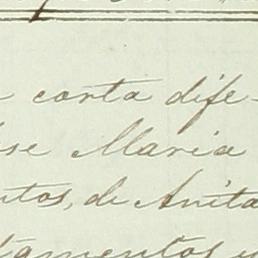 corta dife-
se Maria
ntos, de Anita
tamentos